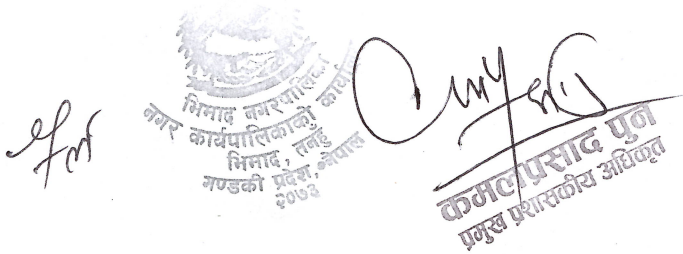 भिमाद नगरपालिका
नगर कार्यपालिकाको कार्या
भिमाद, तनहुँ
गण्डकी प्रदेश, नेपाल
२०७३
कमलप्रसाद पुन
प्रमुख प्रशासकीय अधिकृत